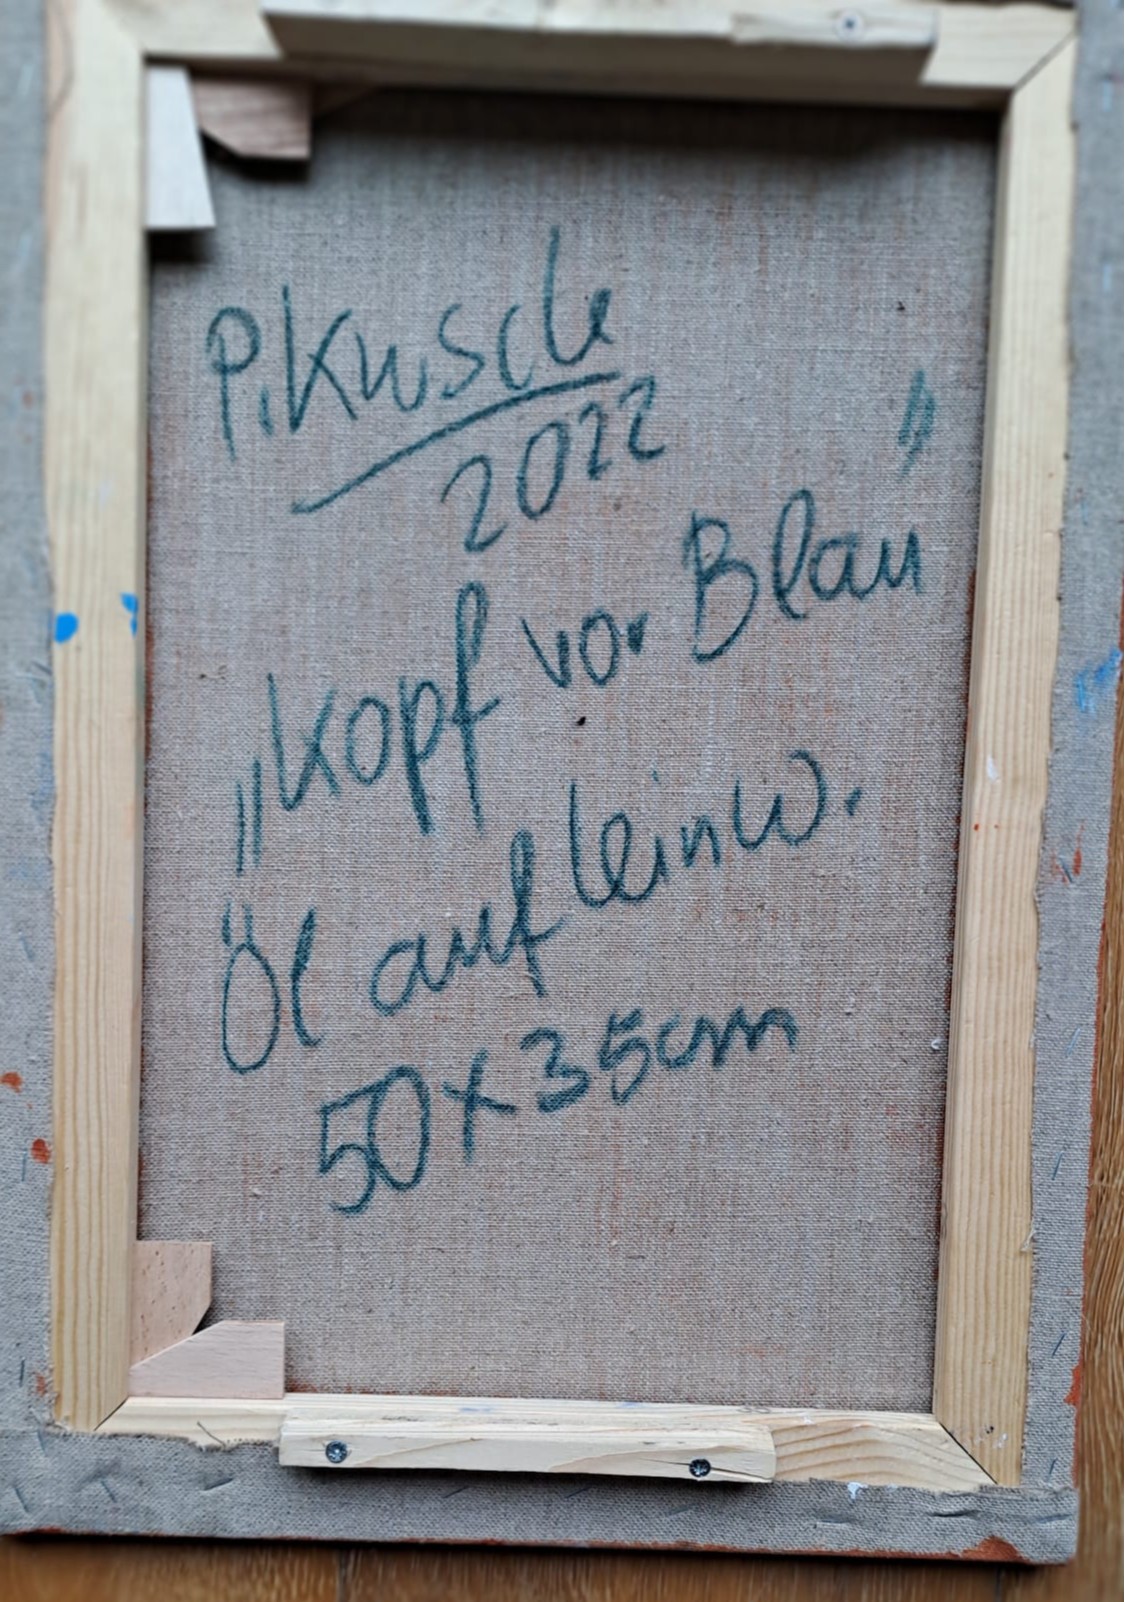 P. Kusche
2022
„Kopf vor Blau”
Öl auf Leinw.
50x35cm